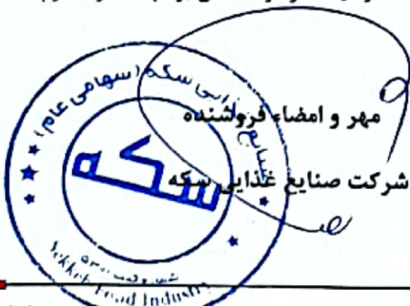 مهر و امضاء فروشنده
شرکت صنایع غذایی سکه
صنایع غذایی سکه (سهامی عام)
سکه
Sekkeh Food Industry